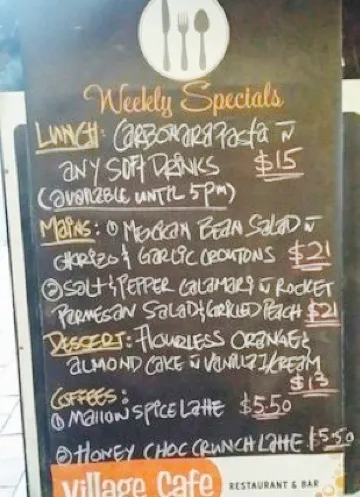 Weekly Specials
LUNCH: CARBONARA PASTA W
ANY SOFT DRINKS $15
(AVAILABLE UNTIL 5PM)
MAINS: ① MEXICAN BEAN SALAD W
CHORIZO & GARLIC CROUTONS $21
② SALT & PEPPER CALAMARI W ROCKET
PARMESAN SALAD & GRILLED PEACH $21
DESSERT: FLOURLESS ORANGE &
ALMOND CAKE W VANILLA I/CREAM
$13
COFFEES:
① SPICE LATTE $5.50
② HONEY CHOC CRUNCH LATTE $5.50
Village Cafe RESTAURANT & BAR